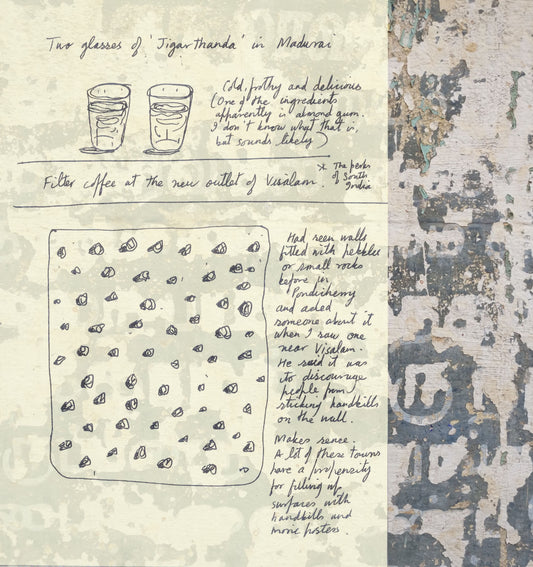 Two glasses of 'Jigarthanda' in Madurai
Cold, frothy and delicious
(One of the ingredients
apparently is almond gum.
I don't know what that is,
but sounds likely)
Filter coffee at the new outlet of Visalam.
* The perks
of South
India
Had seen walls
fitted with pebbles
or small rocks
before in
Pondicherry
and asked
someone about it
when I saw one
near Visalam.
He said it was
to discourage
people from
sticking handbills
on the wall.
Makes sense.
A lot of these towns
have a propensity
for filling up
surfaces with
handbills and
movie posters.